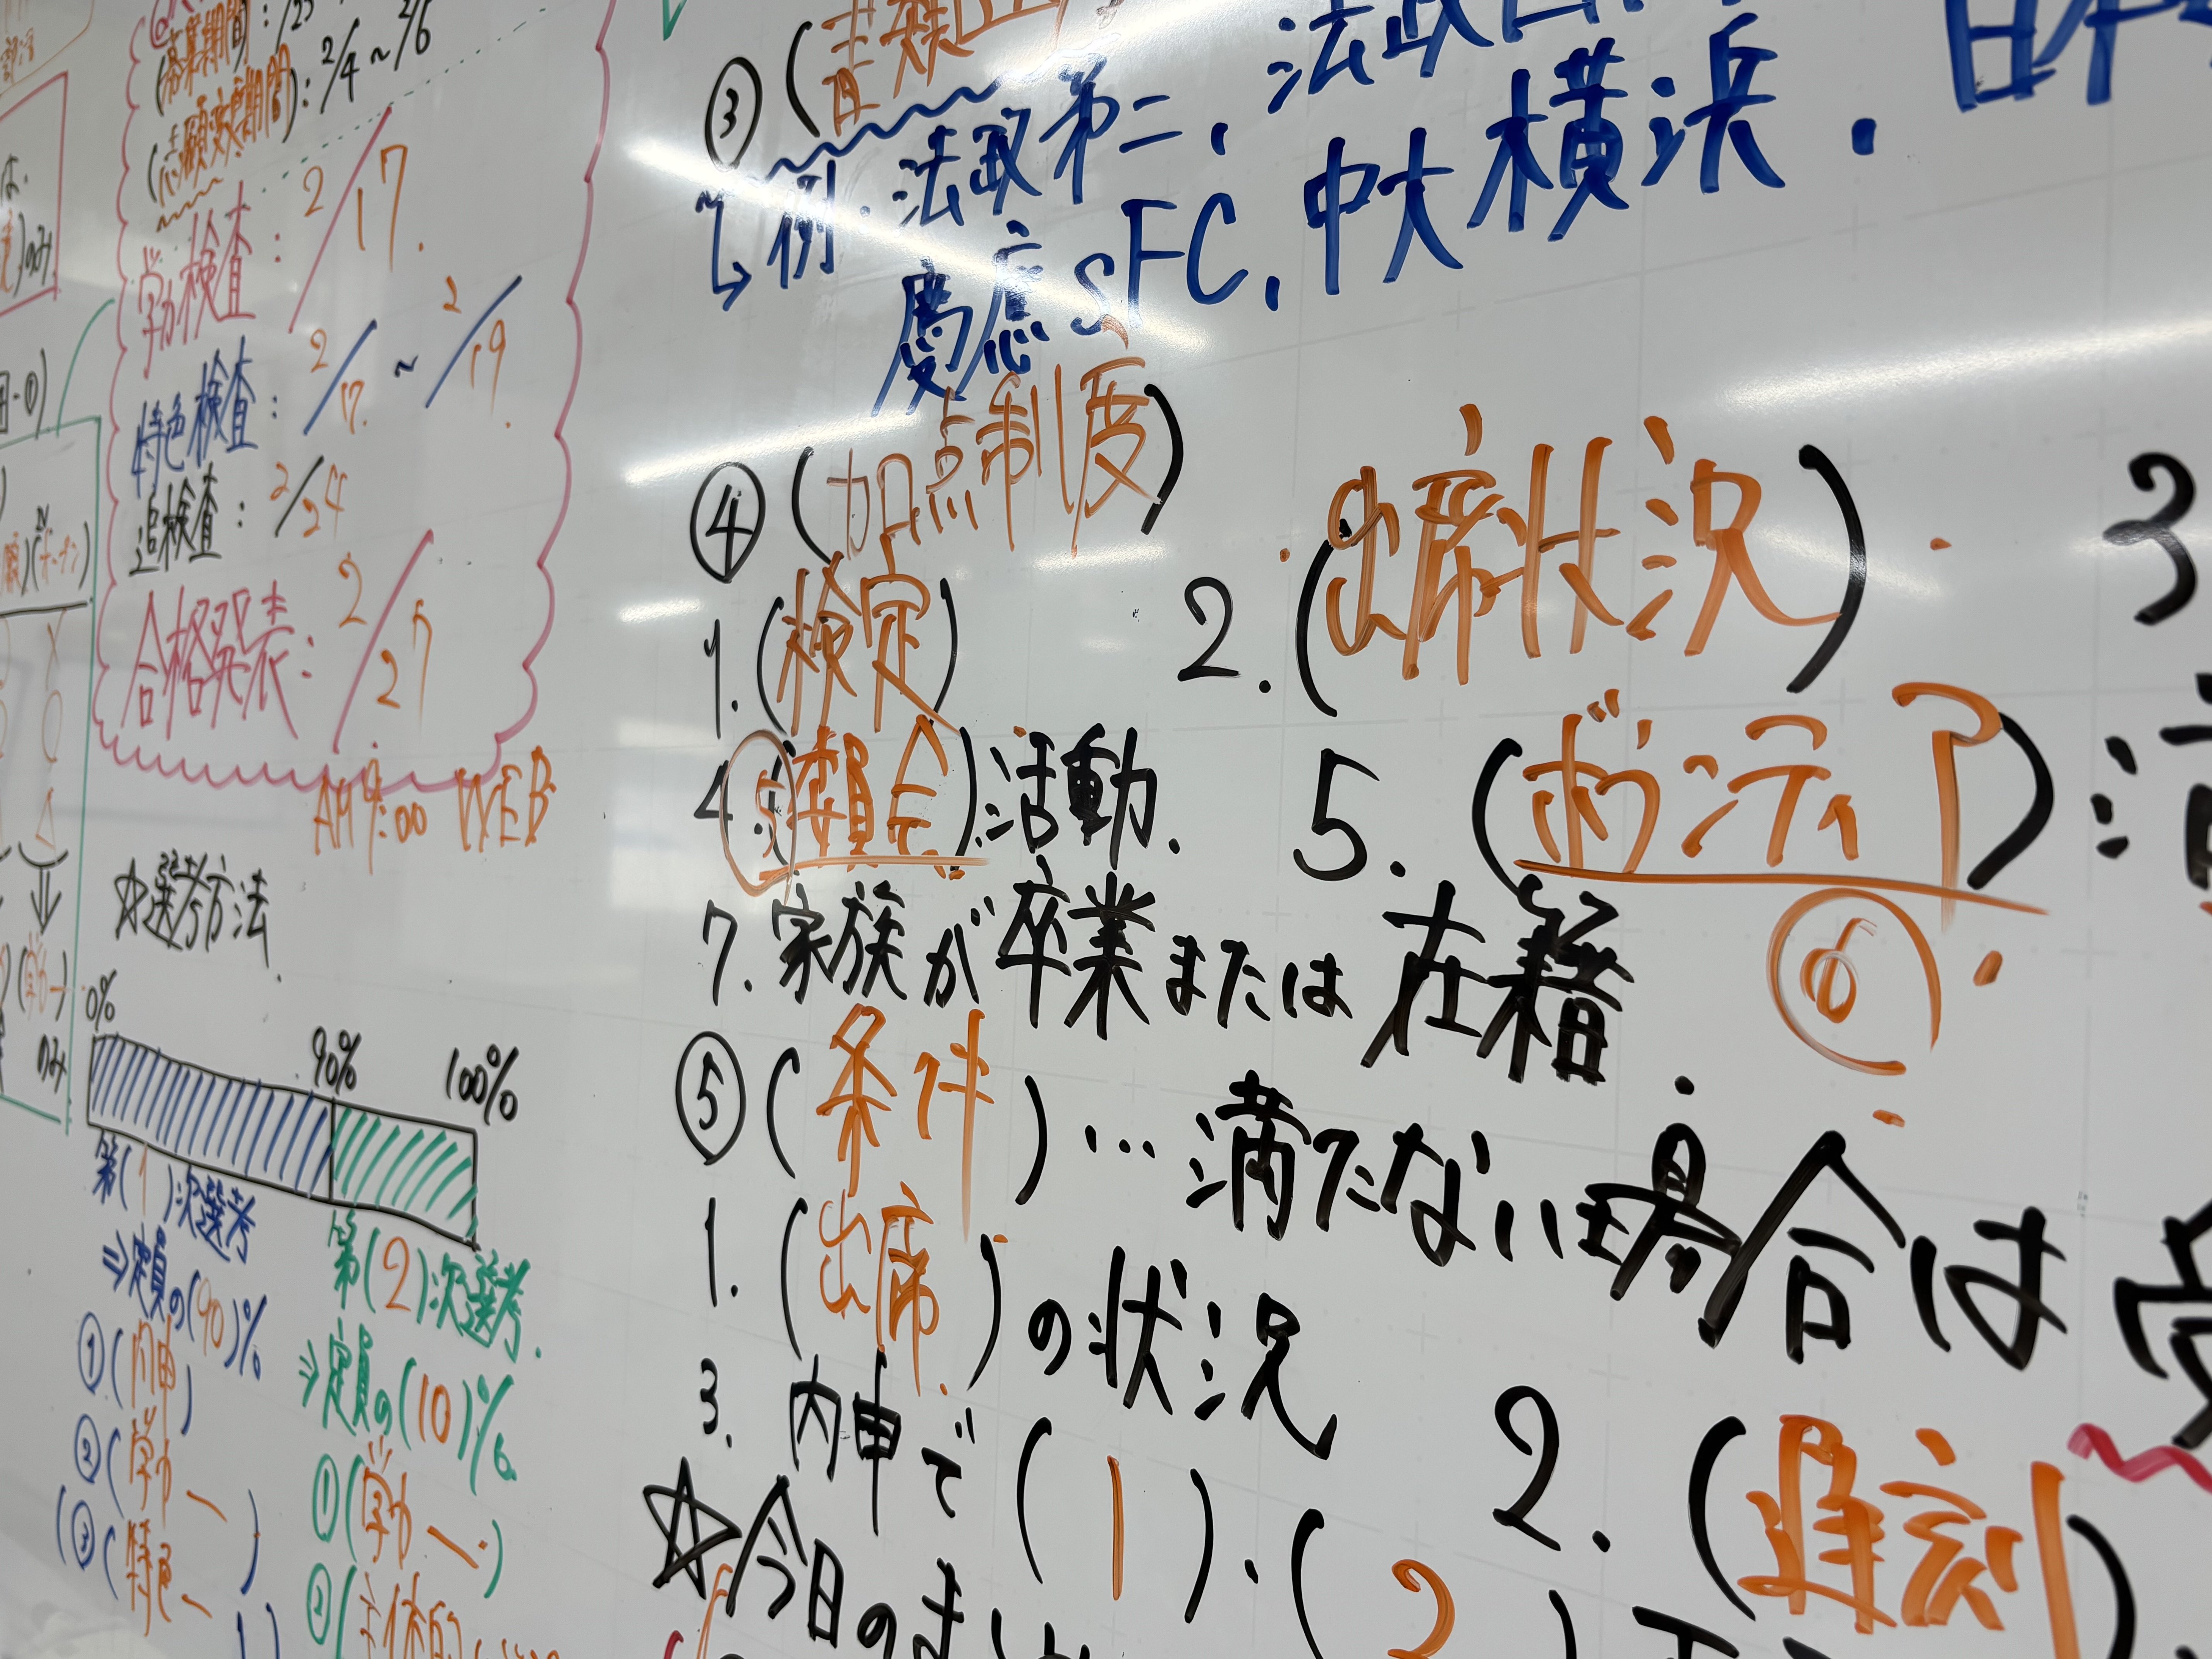 (志願変更期間):2/4~2/6
学力検査:2/17.
特色検査:2/17.~2/19.
追検査:2/24
合格発表:2/27
AM9:00 WEB
☆選考方法.
0% 90% 100%
第(1)次選考
⇒定員の(90)%
①(内申)
②(学力ー)
(③(特色ー)
第(2)次選考.
⇒定員の(10)%
①(学力ー)
②(主体的
③(書類
↳例.法政第二、法政
慶應SFC、中大横浜.日本
④(加点制度)
1.(検定) 2.(出席状況). 3
4.(委員会)活動. 5.(ボランティア)
5 6
7.家族が卒業または在籍.
⑤(条件)…満たない場合は受
1.(出席)の状況
2.(遅刻)
3.内申で(1)・(2)
☆今日のま